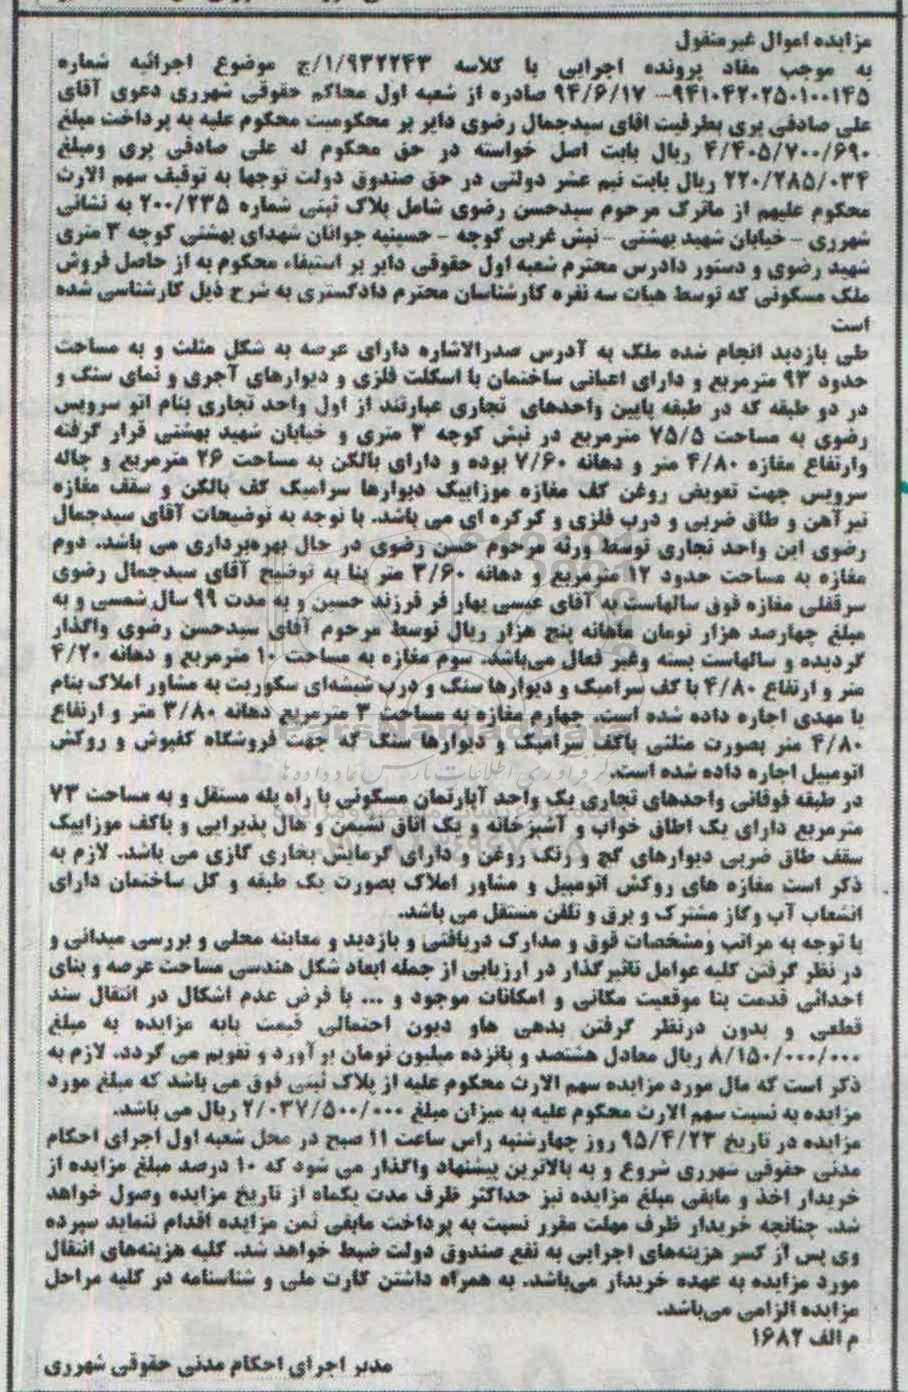 مزایده اموال غیرمنقول
به موجب مفاد پرونده اجرایی با کلاسه ۹۳۲۲۴۳/۱/ج موضوع اجرائیه شماره
۹۴۱۰۴۲۰۲۵۰۱۰۰۱۴۵... ۹۴/۶/۱۷ صادره از شعبه اول محاکم حقوقی شهرری دعوی آقای
علی صادقی پری بطرفیت اقای سیدجمال رضوی دایر بر محکومیت محکوم علیه به پرداخت مبلغ
۴/۴۰۵/۷۰۰/۶۹۰ ریال بابت اصل خواسته در حق محکوم له علی صادقی پری ومبلغ
۲۲۰/۲۸۵/۰۳۴ ریال بابت نیم عشر دولتی در حق صندوق دولت توجها به توقیف سهم الارث
محکوم علیهم از ماترک مرحوم سیدحسن رضوی شامل پلاک ثبتی شماره ۲۰۰/۲۳۵ به نشانی
شهرری - خیابان شهید بهشتی - نبش غربی کوچه - حسینیه جوانان شهدای بهشتی کوچه ۳ متری
شهید رضوی و دستور دادرس محترم شعبه اول حقوقی دایر بر استیفاء محکوم به از حاصل فروش
ملک مسکونی که توسط هیات سه نفره کارشناسان محترم دادگستری به شرح ذیل کارشناسی شده
است
طی بازدید انجام شده ملک به آدرس صدرالاشاره دارای عرصه به شکل مثلث و به مساحت
حدود ۹۳ مترمربع و دارای اعیانی ساختمان با اسکلت فلزی و دیوارهای آجری و نمای سنگ و
در دو طبقه که در طبقه پایین واحدهای تجاری عبارتند از اول واحد تجاری بنام اتو سرویس
رضوی به مساحت ۷۵/۵ مترمربع در نبش کوچه ۳ متری و خیابان شهید بهشتی قرار گرفته
وارتفاع مغازه ۴/۸۰ متر و دهانه ۷/۶۰ بوده و دارای بالکن به مساحت ۲۶ مترمربع و چاله
سرویس جهت تعویض روغن کف مغازه موزاییک دیوارها سرامیک کف بالکن و سقف مغازه
تیرآهن و طاق ضربی و درب فلزی و کرکره ای می باشد. با توجه به توضیحات آقای سیدجمال
رضوی این واحد تجاری توسط ورثه مرحوم حسن رضوی در حال بهره‌برداری می باشد. دوم
مغازه به مساحت حدود ۱۲ مترمربع و دهانه ۳/۶۰ متر بنا به توضیح آقای سیدجمال رضوی
سرقفلی مغازه فوق سالهاست به آقای عیسی بهار فر فرزند حسین و به مدت ۹۹ سال شمسی و به
مبلغ چهارصد هزار تومان ماهانه پنج هزار ریال توسط مرحوم آقای سیدحسن رضوی واگذار
گردیده و سالهاست بسته وغیر فعال می‌باشد. سوم مغازه به مساحت ۱۰ مترمربع و دهانه ۴/۲۰
متر و ارتفاع ۴/۸۰ با کف سرامیک و دیوارها سنگ و درب شیشه‌ای سکوریت به مشاور املاک بنام
یا مهدی اجاره داده شده است. چهارم مغازه به مساحت ۳ مترمربع دهانه ۳/۸۰ متر و ارتفاع
۴/۸۰ متر بصورت مثلثی باکف سرامیک و دیوارها سنگ که جهت فروشگاه کفپوش و روکش
اتومبیل اجاره داده شده است.
در طبقه فوقانی واحدهای تجاری یک واحد آپارتمان مسکونی با راه پله مستقل و به مساحت ۷۳
مترمربع دارای یک اطاق خواب و آشپزخانه و یک اتاق نشیمن و هال پذیرایی و باکف موزاییک
سقف طاق ضربی دیوارهای گچ و رنگ روغن و دارای گرمایش بخاری گازی می باشد. لازم به
ذکر است مغازه های روکش اتومبیل و مشاور املاک بصورت یک طبقه و کل ساختمان دارای
انشعاب آب وگاز مشترک و برق و تلفن مستقل می باشد.
با توجه به مراتب ومشخصات فوق و مدارک دریافتی و بازدید و معاینه محلی و بررسی میدانی و
در نظر گرفتن کلیه عوامل تاثیرگذار در ارزیابی از جمله ابعاد شکل هندسی مساحت عرصه و بنای
احداثی قدمت بنا موقعیت مکانی و امکانات موجود و ... با فرض عدم اشکال در انتقال سند
قطعی و بدون درنظر گرفتن بدهی هاو دیون احتمالی قیمت پایه مزایده به مبلغ
۸/۱۵۰/۰۰۰/۰۰۰ ریال معادل هشتصد و پانزده میلیون تومان برآورد و تقویم می گردد. لازم به
ذکر است که مال مورد مزایده سهم الارث محکوم علیه از پلاک ثبتی فوق می باشد که مبلغ مورد
مزایده به نسبت سهم الارث محکوم علیه به میزان مبلغ ۲/۰۳۷/۵۰۰/۰۰۰ ریال می باشد.
مزایده در تاریخ ۹۵/۴/۲۳ روز چهارشنبه راس ساعت ۱۱ صبح در محل شعبه اول اجرای احکام
مدنی حقوقی شهرری شروع و به بالاترین پیشنهاد واگذار می شود که ۱۰ درصد مبلغ مزایده از
خریدار اخذ و مابقی مبلغ مزایده نیز حداکثر ظرف مدت یکماه از تاریخ مزایده وصول خواهد
شد. چنانچه خریدار ظرف مهلت مقرر نسبت به پرداخت مابقی ثمن مزایده اقدام ننماید سپرده
وی پس از کسر هزینه‌های اجرایی به نفع صندوق دولت ضبط خواهد شد. کلیه هزینه‌های انتقال
مورد مزایده به عهده خریدار می‌باشد. به همراه داشتن کارت ملی و شناسنامه در کلیه مراحل
مزایده الزامی می‌باشد.
م الف ۱۶۸۲
مدیر اجرای احکام مدنی حقوقی شهرری